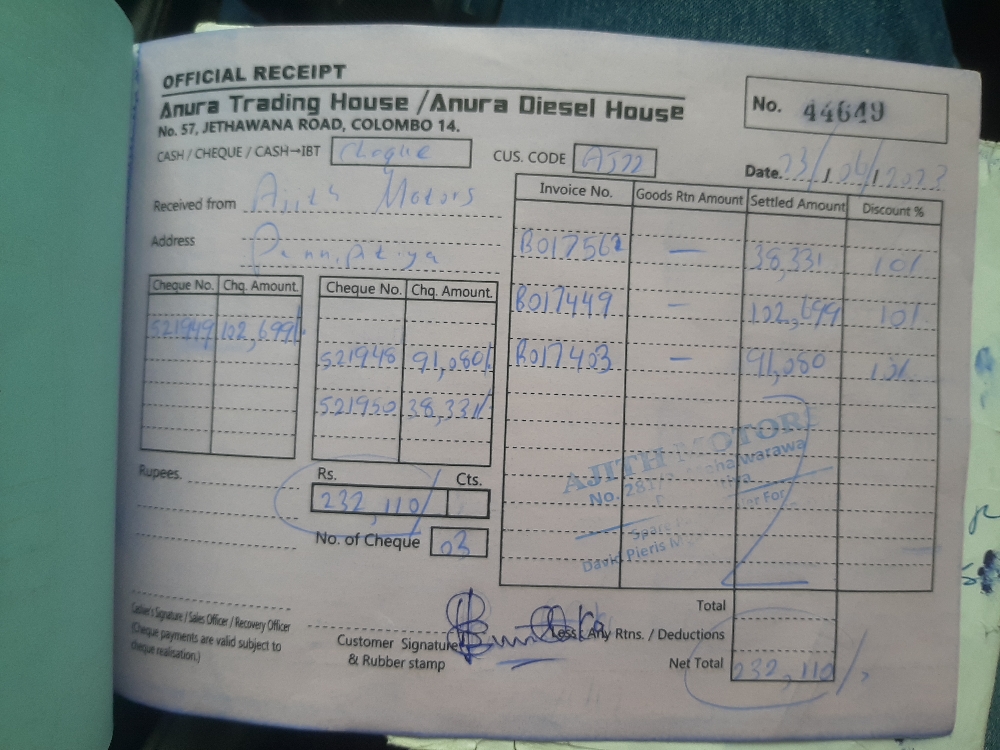 OFFICIAL RECEIPT
Anura Trading House /Anura Diesel House
No. 57, JETHAWANA ROAD, COLOMBO 14.
No. 44649
CASH / CHEQUE / CASH→IBT Cheque
CUS. CODE AJ22
Date. 23/06/2023
Received from Ajith Motors
Address Pannipitiya
Invoice No. Goods Rtn Amount Settled Amount Discount %
B017562 — 38,331 10%
B017449 — 102,699 10%
B017403 — 91,080 10%
Cheque No. Chq. Amount. Cheque No. Chq. Amount.
521949 102,699/-
521948 91,080/-
521950 38,331/-
AJITH MOTORS
No. 281/
David Pieris
Rupees.
Rs. Cts.
232,110/
No. of Cheque 03
Cashier's Signature / Sales Officer / Recovery Officer
(Cheque payments are valid subject to
cheque realisation.)
Customer Signature
& Rubber stamp
Total
Less: Any Rtns. / Deductions
Net Total 232,110/